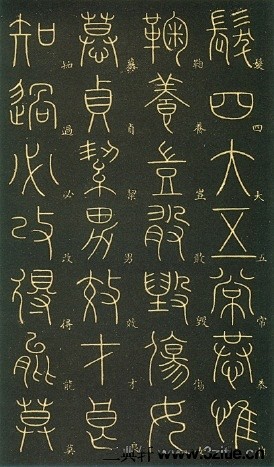 髮四大五常恭惟
髮四大五常恭
鞠養豈敢毀傷女
鞠養豈敢毀傷
慕貞絜男效才良
慕貞絜男效才
知過必改得能莫
知過必改得能莫